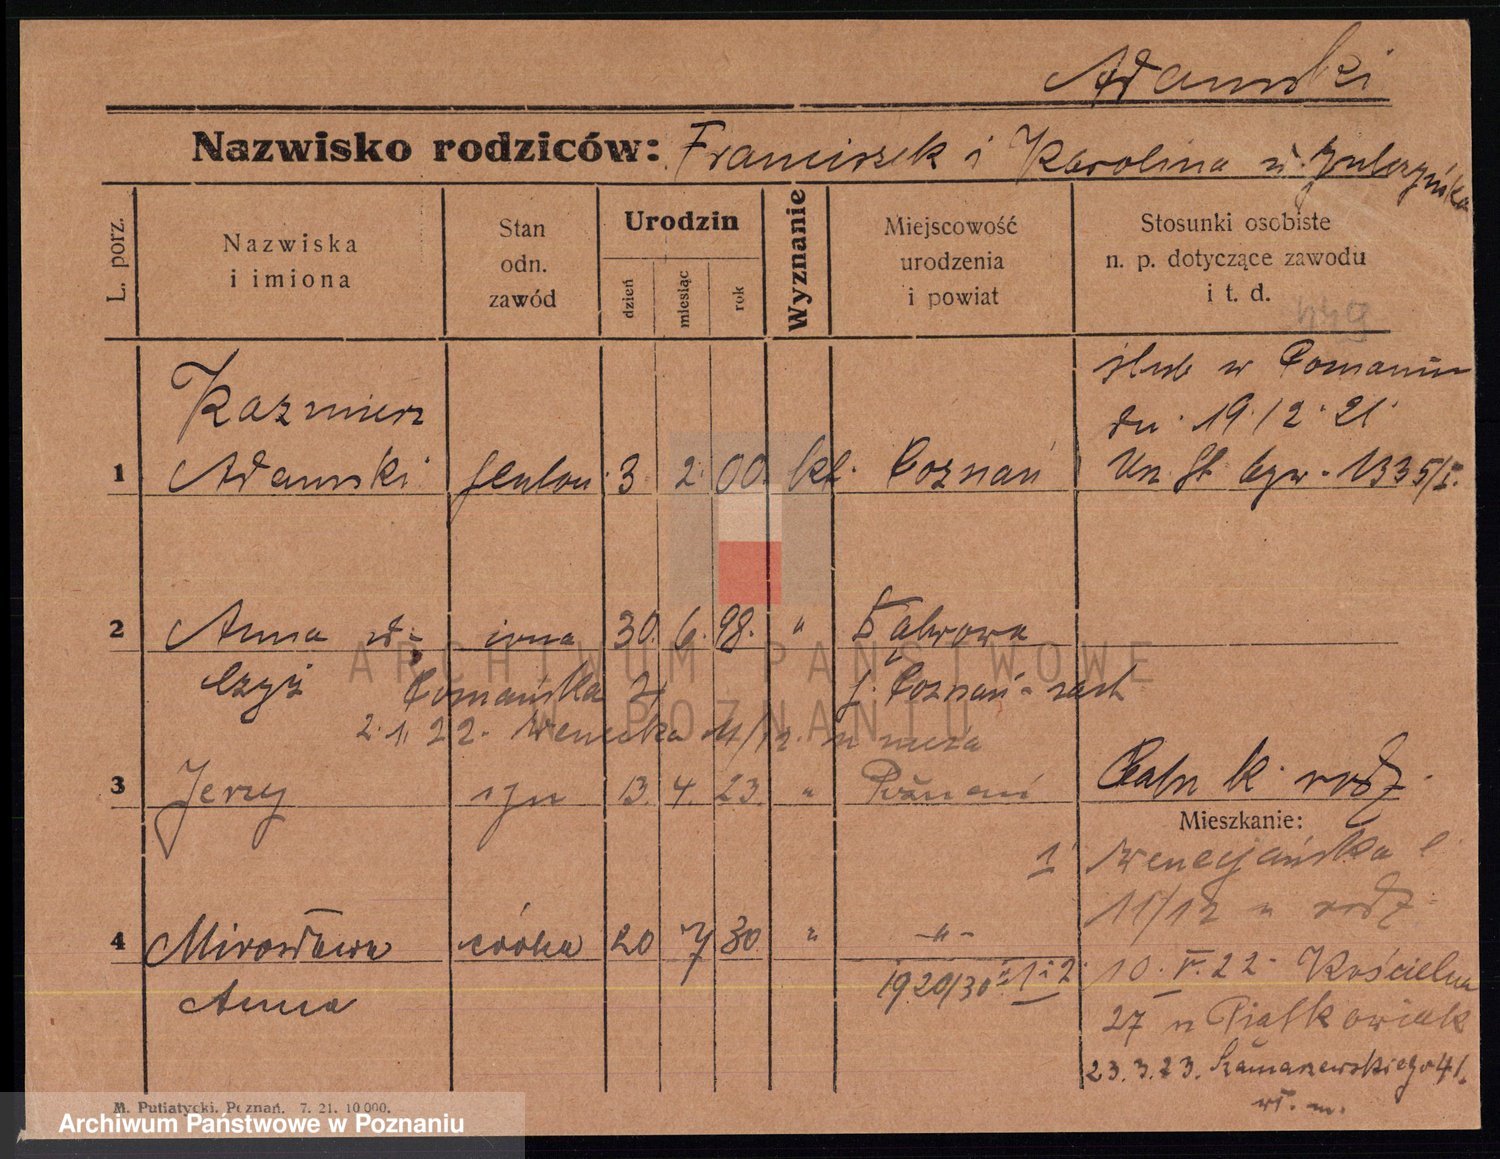 Adamski
Nazwisko rodziców: Franciszek i Karolina u.
L. porz.
Nazwiska
i imiona
Stan
odn.
zawód
Urodzin
dzień
miesiąc
rok
Wyznanie
Miejscowość
urodzenia
i powiat
Stosunki osobiste
n. p. dotyczące zawodu
i t. d.
1
Kazmierz
Adamski
3. 2. 00. kt. Poznań
ślub w Poznaniu
dn. 19.12.21.
Un. St. 1335/I.
2 Anna d. żona 30. 6. 98. " Dąbrowa
Czyż
p. Poznań-zach
2.1.22. Wenecka 11/12. u męża
3 Jerzy syn 13. 4. 23. " Poznań
k. rodz.
Mieszkanie:
1 Wenecjańska
11/12 u rodz.
4 Mirosława córka 20 7 30 " -"-
Anna
1920/30 1 i 2
10.V.22. Kościelna
27 u Piątkowiak
23.3.23. Szamarzewskiego 41.
wł. m.
M. Putiatycki. Poznań. 7. 21. 10 000.
ARCHIWUM PAŃSTWOWE
W POZNANIU
Archiwum Państwowe w Poznaniu